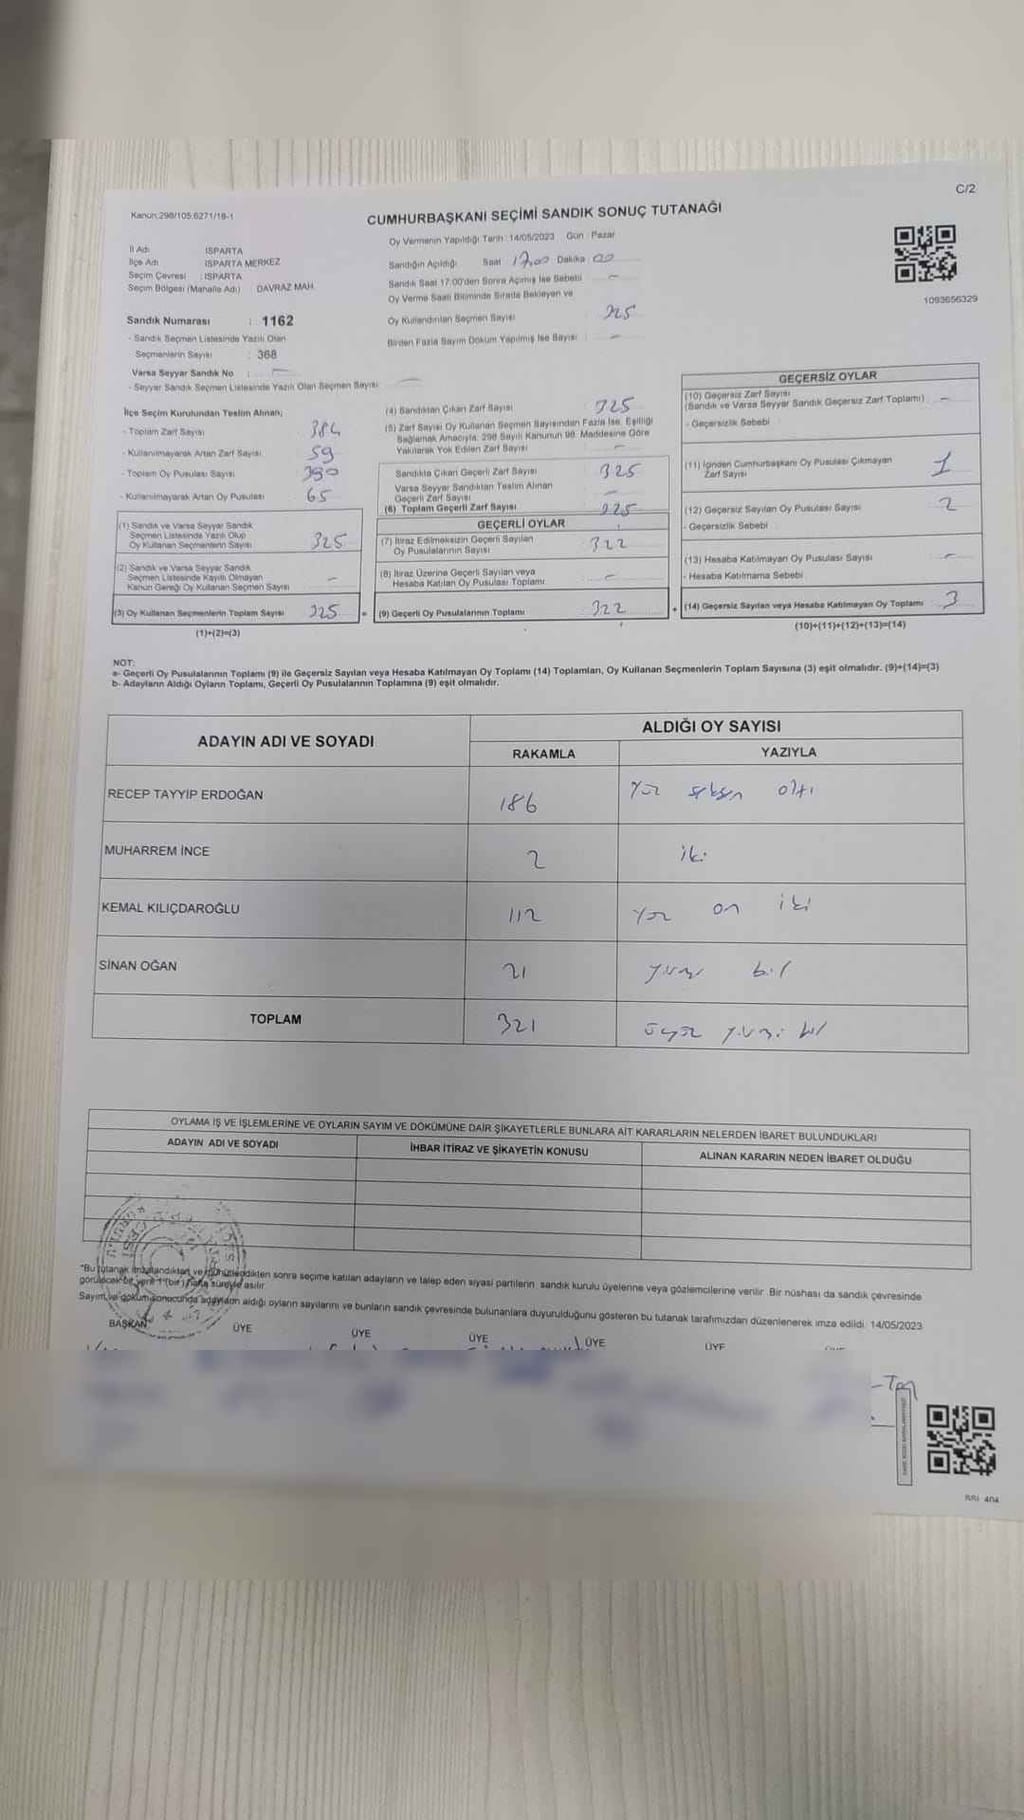 C/2
Kanun:298/105.6271/18-1
CUMHURBAŞKANI SEÇİMİ SANDIK SONUÇ TUTANAĞI
İl Adı : ISPARTA
İlçe Adı : ISPARTA MERKEZ
Seçim Çevresi : ISPARTA
Seçim Bölgesi (Mahalle Adı) : DAVRAZ MAH.
Sandık Numarası : 1162
- Sandık Seçmen Listesinde Yazılı Olan
Seçmenlerin Sayısı : 368
Varsa Seyyar Sandık No : —
- Seyyar Sandık Seçmen Listesinde Yazılı Olan Seçmen Sayısı —
Oy Vermenin Yapıldığı Tarih : 14/05/2023 Gün : Pazar
Sandığın Açıldığı Saat 17.00 Dakika 00
Sandık Saat 17:00'den Sonra Açılmış İse Sebebi —
Oy Verme Saati Bitiminde Sırada Bekleyen ve
Oy Kullandırılan Seçmen Sayısı 325
Birden Fazla Sayım Döküm Yapılmış İse Sayısı : —
1093656329
İlçe Seçim Kurulundan Teslim Alınan;
- Toplam Zarf Sayısı 384
- Kullanılmayarak Artan Zarf Sayısı 59
- Toplam Oy Pusulası Sayısı 390
- Kullanılmayarak Artan Oy Pusulası 65
(1) Sandık ve Varsa Seyyar Sandık
Seçmen Listesinde Yazılı Olup
Oy Kullanan Seçmenlerin Sayısı 325
(2) Sandık ve Varsa Seyyar Sandık
Seçmen Listesinde Kayıtlı Olmayan
Kanun Gereği Oy Kullanan Seçmen Sayısı —
(3) Oy Kullanan Seçmenlerin Toplam Sayısı 325 =
(1)+(2)=(3)
(4) Sandıktan Çıkan Zarf Sayısı 325
(5) Zarf Sayısı Oy Kullanan Seçmen Sayısından Fazla İse, Eşitliği
Sağlamak Amacıyla, 298 Sayılı Kanunun 98. Maddesine Göre
Yakılarak Yok Edilen Zarf Sayısı —
Sandıkta Çıkan Geçerli Zarf Sayısı 325
Varsa Seyyar Sandıktan Teslim Alınan
Geçerli Zarf Sayısı —
(6) Toplam Geçerli Zarf Sayısı 325
GEÇERLİ OYLAR
(7) İtiraz Edilmeksizin Geçerli Sayılan
Oy Pusulalarının Sayısı 322
(8) İtiraz Üzerine Geçerli Sayılan veya
Hesaba Katılan Oy Pusulası Toplamı —
(9) Geçerli Oy Pusulalarının Toplamı 322 +
GEÇERSİZ OYLAR
(10) Geçersiz Zarf Sayısı
(Sandık ve Varsa Seyyar Sandık Geçersiz Zarf Toplamı) —
- Geçersizlik Sebebi
(11) İçinden Cumhurbaşkanı Oy Pusulası Çıkmayan
Zarf Sayısı 1
(12) Geçersiz Sayılan Oy Pusulası Sayısı 2
- Geçersizlik Sebebi
(13) Hesaba Katılmayan Oy Pusulası Sayısı —
- Hesaba Katılmama Sebebi
(14) Geçersiz Sayılan veya Hesaba Katılmayan Oy Toplamı 3
(10)+(11)+(12)+(13)=(14)
NOT:
a- Geçerli Oy Pusulalarının Toplamı (9) ile Geçersiz Sayılan veya Hesaba Katılmayan Oy Toplamı (14) Toplamları, Oy Kullanan Seçmenlerin Toplam Sayısına (3) eşit olmalıdır. (9)+(14)=(3)
b- Adayların Aldığı Oyların Toplamı, Geçerli Oy Pusulalarının Toplamına (9) eşit olmalıdır.
ADAYIN ADI VE SOYADI
ALDIĞI OY SAYISI
RAKAMLA YAZIYLA
RECEP TAYYİP ERDOĞAN 186 Yüz seksen altı
MUHARREM İNCE 2 iki
KEMAL KILIÇDAROĞLU 112 Yüz on iki
SİNAN OĞAN 21 yirmi bir
TOPLAM 321 üçyüz yirmi bir
OYLAMA İŞ VE İŞLEMLERİNE VE OYLARIN SAYIM VE DÖKÜMÜNE DAİR ŞİKAYETLERLE BUNLARA AİT KARARLARIN NELERDEN İBARET BULUNDUKLARI
ADAYIN ADI VE SOYADI İHBAR İTİRAZ VE ŞİKAYETİN KONUSU ALINAN KARARIN NEDEN İBARET OLDUĞU
*Bu tutanak imzalandıktan ve mühürlendikten sonra seçime katılan adayların ve talep eden siyasi partilerin sandık kurulu üyelerine veya gözlemcilerine verilir. Bir nüshası da sandık çevresinde
görülecek bir yere 1 (bir) hafta süreyle asılır.
Sayım ve döküm sonucunda adayların aldığı oyların sayılarını ve bunların sandık çevresinde bulunanlara duyurulduğunu gösteren bu tutanak tarafımızdan düzenlenerek imza edildi. 14/05/2023
BAŞKAN ÜYE ÜYE ÜYE ÜYE ÜYE
404